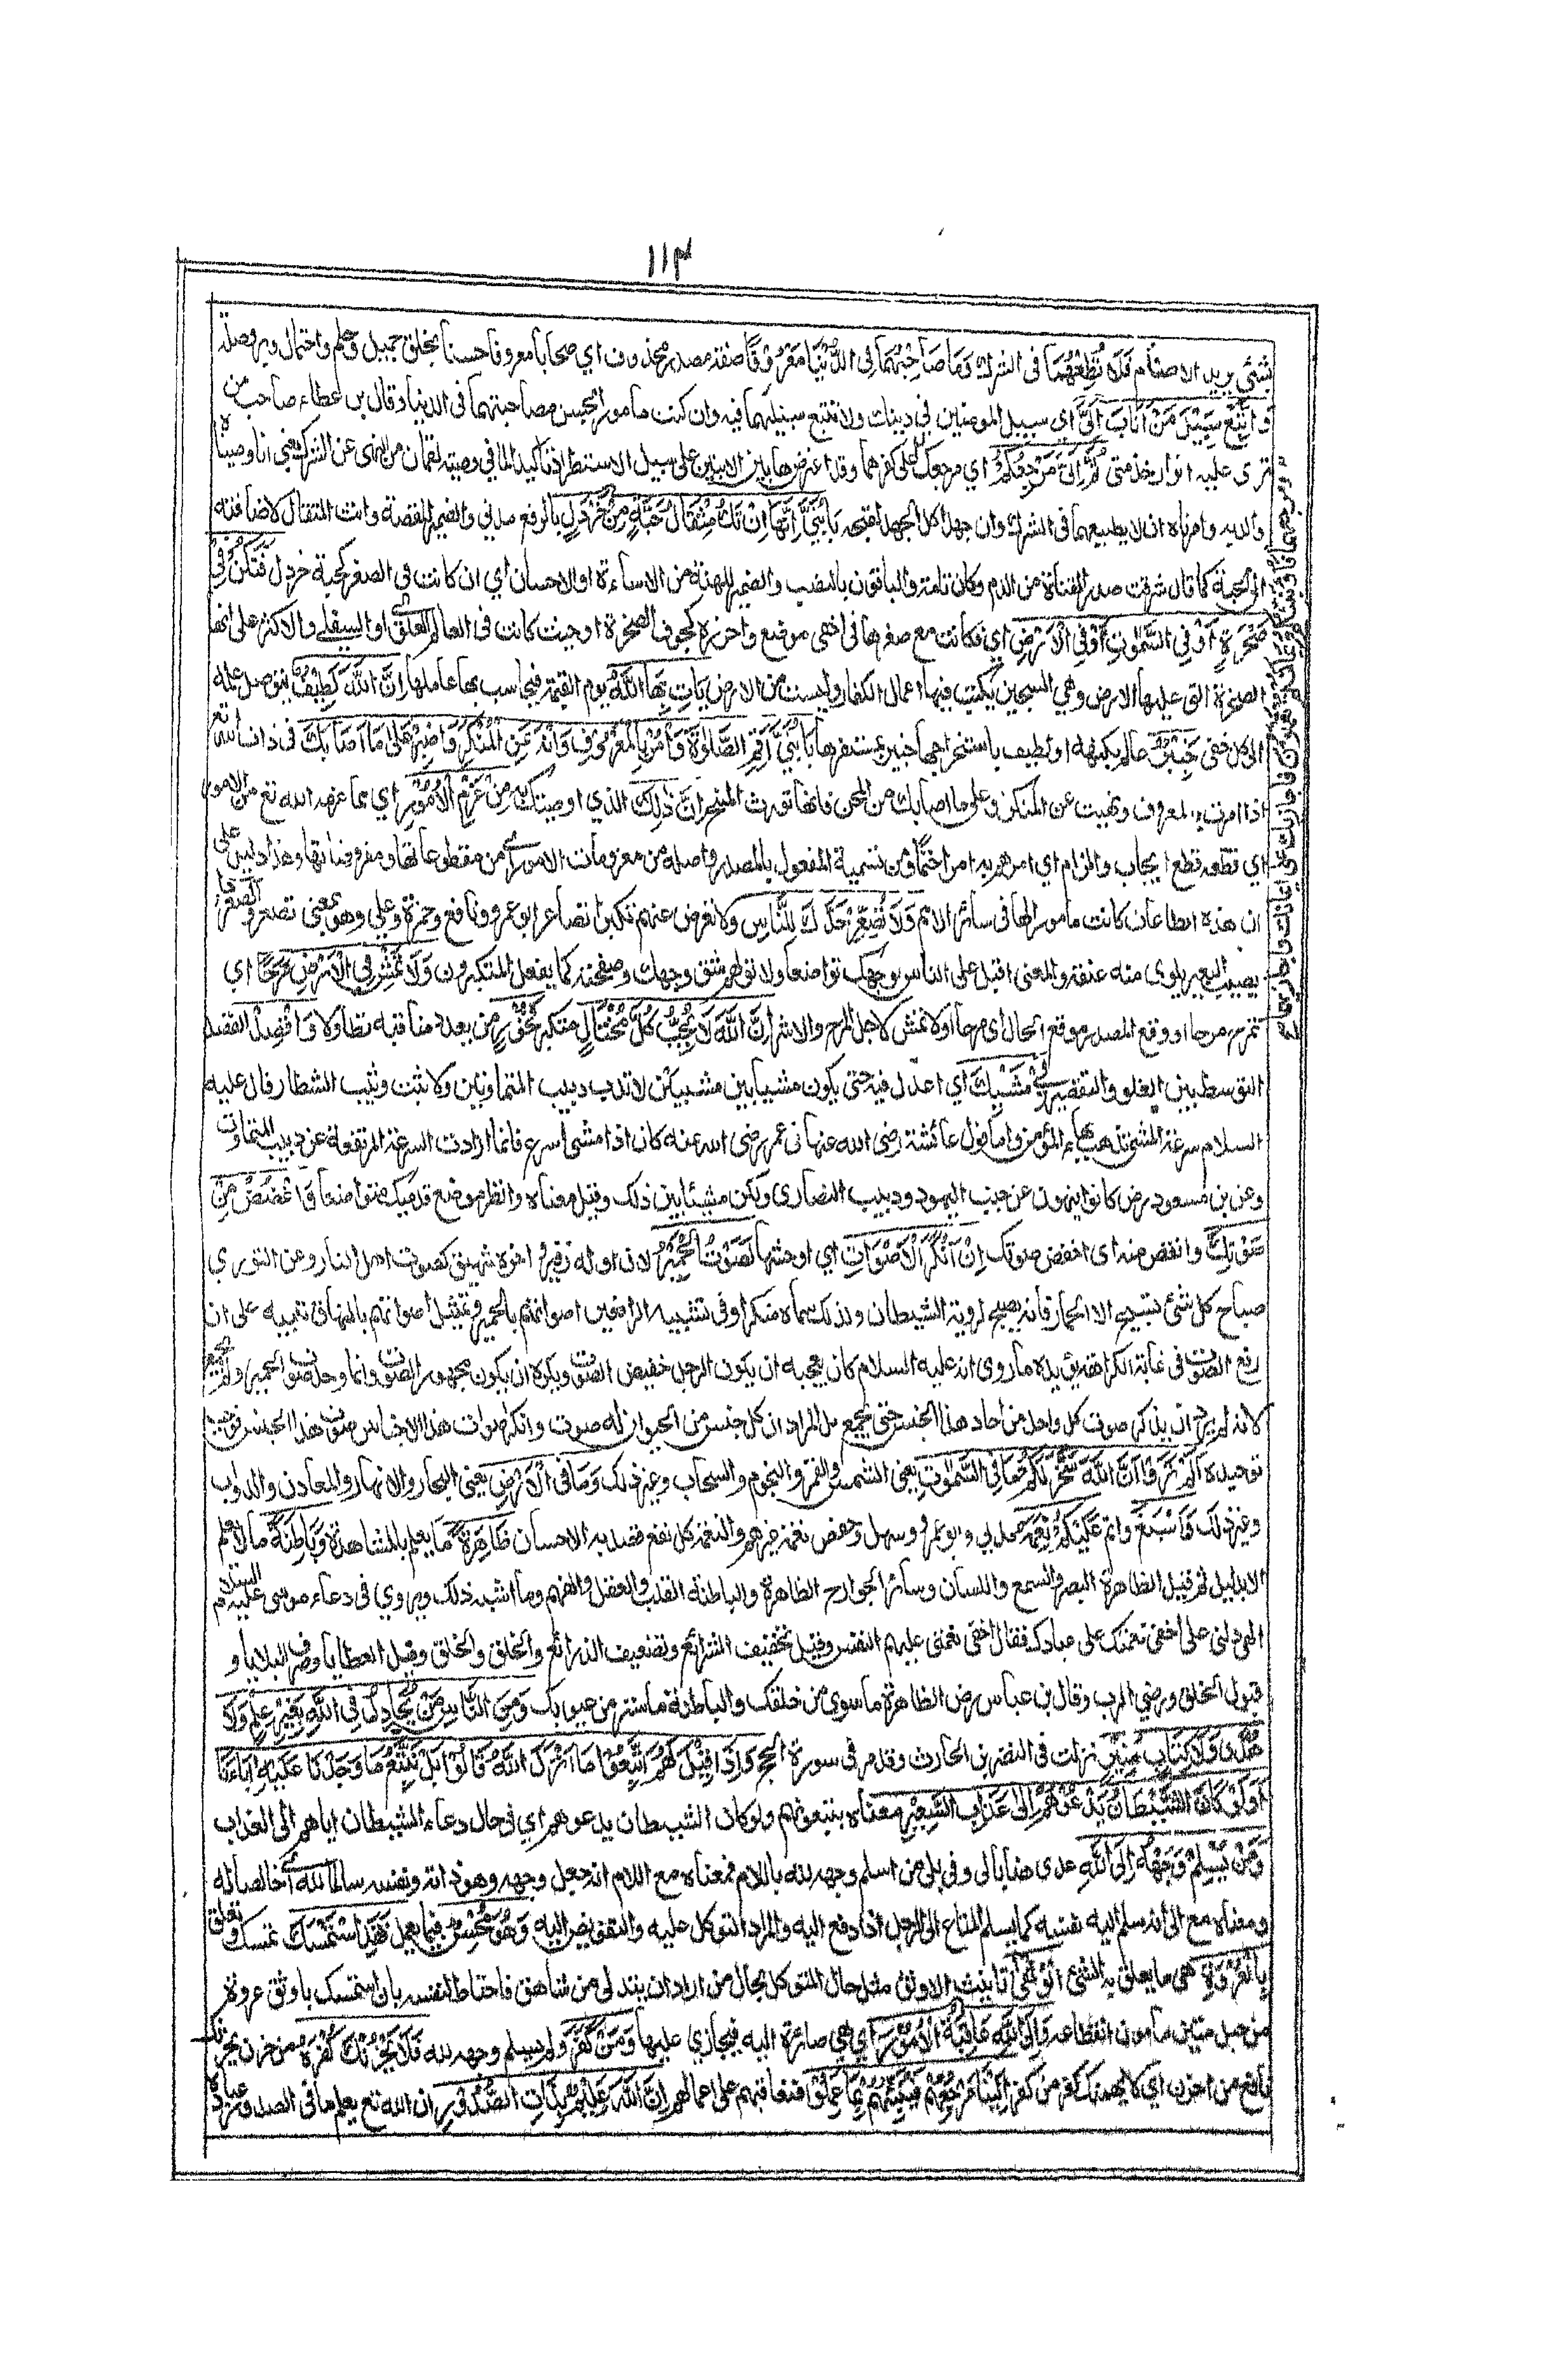 ١١٣
بشئ يريد الاصنام فَلَا تُطِعْهُمَا فى الشرك وَصَاحِبْهُمَا فِى الدُّنْيَا مَعْرُوْفًا صفة مصدر محذوف اي صحابا معروفا حسنا بخلق جميل وحلم واحتمال وبر وصلة
وَاتَّبِعْ سَبِيْلَ مَنْ اَنَابَ اِلَىَّ اى سبيل المومنين في دينك ولا تتبع سبيلهما فيه وان كنت مامورا بحسن مصاحبتهما فى الدنيا وقال بن عطاء صاحب من
ترى عليه انوار خدمتى ثُمَّ اِلَىَّ مَرْجِعُكُمْ اي مرجعك على كفرهما وقد اعترض هاتين الايتين على سبيل الاستطراد تاكيدا لما في وصية لقمان من النهى عن الشرك يعني انا وصيناه
والديه وامرناه ان لا يطيعهما فى الشرك وان جهدا كل الجهد لقبحه يَا بُنَيَّ اِنَّهَا اِنْ تَكُ مِثْقَالُ حَبَّةٍ مِنْ خَرْدَلٍ بالرفع مدني والضمير للقصة وانث المثقال لاضافته
الى الحبة كما قال شرقت صدر القناة من الدم وكان تامة والباقون بالنصب والضمير للهنة من الاساءة او الاحسان اي ان كانت فى الصغر كحبة خردل فَتَكُنْ فِىْ
صَخْرَةٍ اَوْ فِى السَّمٰوٰتِ اَوْ فِى الْاَرْضِ اي فكانت مع صغرها فى اخفى موضع واحرزه كجوف الصخرة او حيث كانت فى العالم العلوي او السفلي والاكثر على انها
الصخرة التى عليها الارض وهي السجين يكتب فيها اعمال الكفار وليست من الارض يَاتِ بِهَا اللّٰهُ يوم القيمة فيحاسب بها عاملها اِنَّ اللّٰهَ لَطِيْفٌ يتوصل علمه
الى كل خفى خَبِيْرٌ عالم بكنهه او لطيف باستخراجها خبير بمستقرها يَا بُنَيَّ اَقِمِ الصَّلٰوةَ وَاْمُرْ بِالْمَعْرُوْفِ وَانْهَ عَنِ الْمُنْكَرِ وَاصْبِرْ عَلٰى مَا اَصَابَكَ فى ذات الله تع
اذا امرت بالمعروف ونهيت عن المنكر وعلى ما اصابك من المحن فانها تورث المنح اِنَّ ذٰلِكَ الذي اوصيتك به مِنْ عَزْمِ الْاُمُوْرِ اي مما عزمه الله تع من الامور
اي قطعه قطع ايجاب والزام اي امر به امرا حتما وهو من تسمية المفعول بالمصدر واصله من معزومات الامور اي من مقطوعاتها ومفروضاتها وهذا دليل على
ان هذه الطاعات كانت مامورا بها فى سائر الامم وَلَا تُصَعِّرْ خَدَّكَ لِلنَّاسِ ولا تعرض عنهم تكبرا تصاعر ابو عمرو ونافع وحمزة وعلي وهو بمعنى تصعر والصعر داء
يصيب البعير يلوى منه عنقه والمعنى اقبل على الناس بوجهك تواضعا ولا تولهم شق وجهك وصفحته كما يفعل المتكبرون وَلَا تَمْشِ فِى الْاَرْضِ مَرَحًا اي
تمرح مرحا او وقع المصدر موقع الحال اي مرحا او لا تمش لاجل المرح والاشر اِنَّ اللّٰهَ لَا يُحِبُّ كُلَّ مُخْتَالٍ متكبر فَخُوْرٍ من يعدد مناقبه تطاولا وَاقْصِدْ القصد
التوسط بين الغلو والتقصير فِى مَشْيِكَ اي اعدل فيه حتى يكون مشيا بين مشيين لا تدب دبيب المتماوتين ولا تثب وثيب الشطار قال عليه
السلام سرعة المشى تذهب بهاء المؤمن واما قول عائشة رضى الله عنها فى عمر رضى الله عنه كان اذا مشى اسرع فانما ارادت السرعة المرتفعة عن دبيب المتماوت
وعن بن مسعود رض كانوا ينهون عن خبب اليهود ودبيب النصارى ولكن مشيا بين ذلك وقيل معناه وانظر موضع قدميك متواضعا وَاغْضُضْ مِنْ
صَوْتِكَ وانقص منه اى اخفض صوتك اِنَّ اَنْكَرَ الْاَصْوَاتِ اي اوحشها لَصَوْتُ الْحَمِيْرِ لان اوله زفير واخره شهيق كصوت اهل النار وعن الثوري
صياح كل شئ تسبيح الا الحمار فانه يصيح لروية الشيطان ولذلك سماه منكرا وفى تشبيه الرافعين اصواتهم بالحمير وتمثيل اصواتهم بالنهاق تنبيه على ان
رفع الصوت فى غاية الكراهة يؤيده ما روى انه عليه السلام كان يعجبه ان يكون الرجل خفيض الصوت ويكره ان يكون مجهور الصوت وانما وحد صوت الحمير ولم يجمع
لانه لم يرد ان يذكر صوت كل واحد من احاد هذا الجنس حتى يجمع بل المراد ان كل جنس من الحيوان له صوت وانكر اصوات هذا الاجناس صوت هذا الجنس فوجب
توحيده اَلَمْ تَرَوْا اَنَّ اللّٰهَ سَخَّرَ لَكُمْ مَّا فِى السَّمٰوٰتِ يعنى الشمس والقمر والنجوم والسحاب وغير ذلك وَمَا فِى الْاَرْضِ يعنى البحار والانهار والمعادن والدواب
وغير ذلك وَاَسْبَغَ واتم عَلَيْكُمْ نِعَمَهٗ مدنى وابو عمرو وسهل وحفص نعمة غيرهم والنعمة كل نفع قصد به الاحسان ظَاهِرَةً ما يعلم بالمشاهدة وَبَاطِنَةً مالا يعلم
الا بدليل ثم قيل الظاهرة البصر والسمع واللسان وسائر الجوارح الظاهرة والباطنة القلب والعقل والفهم وما اشبه ذلك ويروى فى دعاء موسى عليه السلام
الهى دلنى على اخفى نعمتك على عبادك فقال اخفى نعمتى عليهم النفس وقيل تخفيف الشرائع وتضعيف الذرائع والخلق والخلق وقيل العطايا وصرف البلايا و
قبول الخلق ورضى الرب وقال بن عباس رض الظاهرة ما سوى من خلقك والباطنة ما ستر من عيوبك وَمِنَ النَّاسِ مَنْ يُّجَادِلُ فِى اللّٰهِ بِغَيْرِ عِلْمٍ وَلَا
هُدًى وَلَا كِتَابٍ مُنِيْرٍ نزلت فى النضر بن الحارث وقد مر فى سورة الحج وَاِذَا قِيْلَ لَهُمُ اتَّبِعُوْا مَا اَنْزَلَ اللّٰهُ قَالُوْا بَلْ نَتَّبِعُ مَا وَجَدْنَا عَلَيْهِ اٰبَاءَنَا
اَوَلَوْ كَانَ الشَّيْطَانُ يَدْعُوْهُمْ اِلٰى عَذَابِ السَّعِيْرِ معناه يتبعونهم ولو كان الشيطان يدعوهم اي فى حال دعاء الشيطان اياهم الى العذاب
وَمَنْ يُسْلِمْ وَجْهَهٗ اِلَى اللّٰهِ عدى هنا بالى وفى بلى من اسلم وجهه لله باللام فمعناه مع اللام انه جعل وجهه وهو ذاته ونفسه سالما لله اي خالصا له
ومعناه مع الى انه سلم اليه نفسه كما يسلم المتاع الى الرجل اذا دفع اليه والمراد التوكل عليه والتفويض اليه وَهُوَ مُحْسِنٌ فيما يعمل فَقَدِ اسْتَمْسَكَ تمسك وتعلق
بِالْعُرْوَةِ هى ما يعلق به الشئ الْوُثْقٰى تانيث الاوثق مثل حال المتوكل بحال من اراد ان يتدلى من شاهق فاحتاط لنفسه بان استمسك باوثق عروة
من حبل متين مامون انقطاعه وَاِلَى اللّٰهِ عَاقِبَةُ الْاُمُوْرِ اي هي صائرة اليه فيجازي عليها وَمَنْ كَفَرَ ولم يسلم وجهه لله فَلَا يَحْزُنْكَ كُفْرُهٗ من حزن يحزنك
نافع من احزن اي لا يهمنك كفر من كفر اِلَيْنَا مَرْجِعُهُمْ فَنُنَبِّئُهُمْ بِمَا عَمِلُوْا فنعاقبهم على اعمالهم اِنَّ اللّٰهَ عَلِيْمٌ بِذَاتِ الصُّدُوْرِ ان الله تع يعلم ما فى الصدور